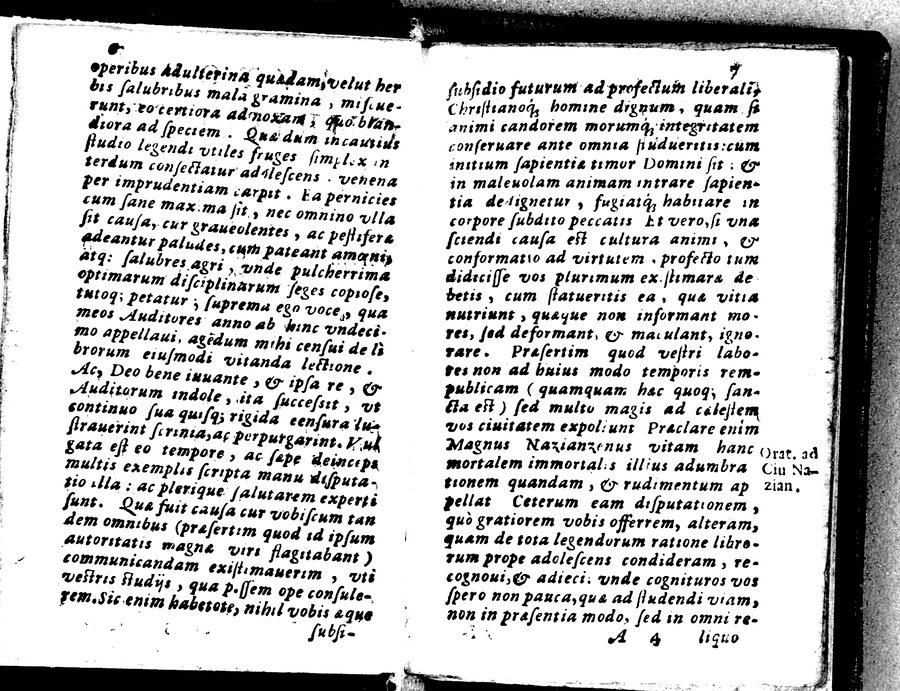 6
operibus adulterina quædam, velut her
bis salubribus mala gramina, miscue-
runt, eo certiora ad noxam, quo blan-
diora ad speciem. Quædum incautius
studio legendi vtiles fruges simplex in
terdum consectatur adolescens venena
per imprudentiam carpit. Ea pernicies
cum sane maxima sit, nec omnino vlla
sit causa, cur graueolentes, ac pestiferæ
adeantur paludes, cum pateant amœni,
atq; salubres agri, vnde pulcherrima
optimarum disciplinarum seges copiose,
tutoq; petatur; suprema ego voce, qua
meos Auditores anno ab hinc vndeci-
mo appellaui, agedum mihi censui de li
brorum eiusmodi vitanda lectione.
Ac, Deo bene iuuante, & ipsa re, &
Auditorum indole, ita successit, vt
continuo sua quisq; rigida censura lu-
strauerint scrinia, ac perpurgarint. Vul
gata est eo tempore, ac sæpe deinceps
multis exemplis scripta manu disputa-
tio illa: ac plerique salutarem experti
sunt. Quæ fuit causa cur vobiscum tan
dem omnibus (præsertim quod id ipsum
autoritatis magnæ viri flagitabant)
communicandam existimauerim, vti
vestris studijs, qua possem ope consule-
rem. Sic enim habetote, nihil vobis æque
subsi-
7
subsidio futurum ad profectum liberali,
Christianoq; homine dignum, quam si
animi candorem morumq; integritatem
conseruare ante omnia studueritis: cum
initium sapientiæ timor Domini sit: &
in maleuolam animam intrare sapien-
tia dedignetur, fugiatq; habitare in
corpore subdito peccatis Et vero, si vna
sciendi causa est cultura animi, &
conformatio ad virtutem. profecto tum
didicisse vos plurimum existimare de
betis, cum statueritis ea, quæ vitia
nutriunt, quæque non informant mo-
res, sed deformant, & maculant, igno-
rare. Præsertim quod vestri labo-
res non ad huius modo temporis rem-
publicam (quamquam hæc quoq; san-
cta est) sed multo magis ad cælestem
vos ciuitatem expoliunt Præclare enim
Magnus Nazianzenus vitam hanc
mortalem immortalis illius adumbra
tionem quandam, & rudimentum ap
pellat Ceterum eam disputationem,
quò gratiorem vobis offerrem, alteram,
quam de tota legendorum ratione libro-
rum prope adolescens condideram, re-
cognoui, & adieci. vnde cognituros vos
spero non pauca, quæ ad studendi viam,
non in præsentia modo, sed in omni re-
A 4 liquo
Orat. ad
Ciu Na-
zian.